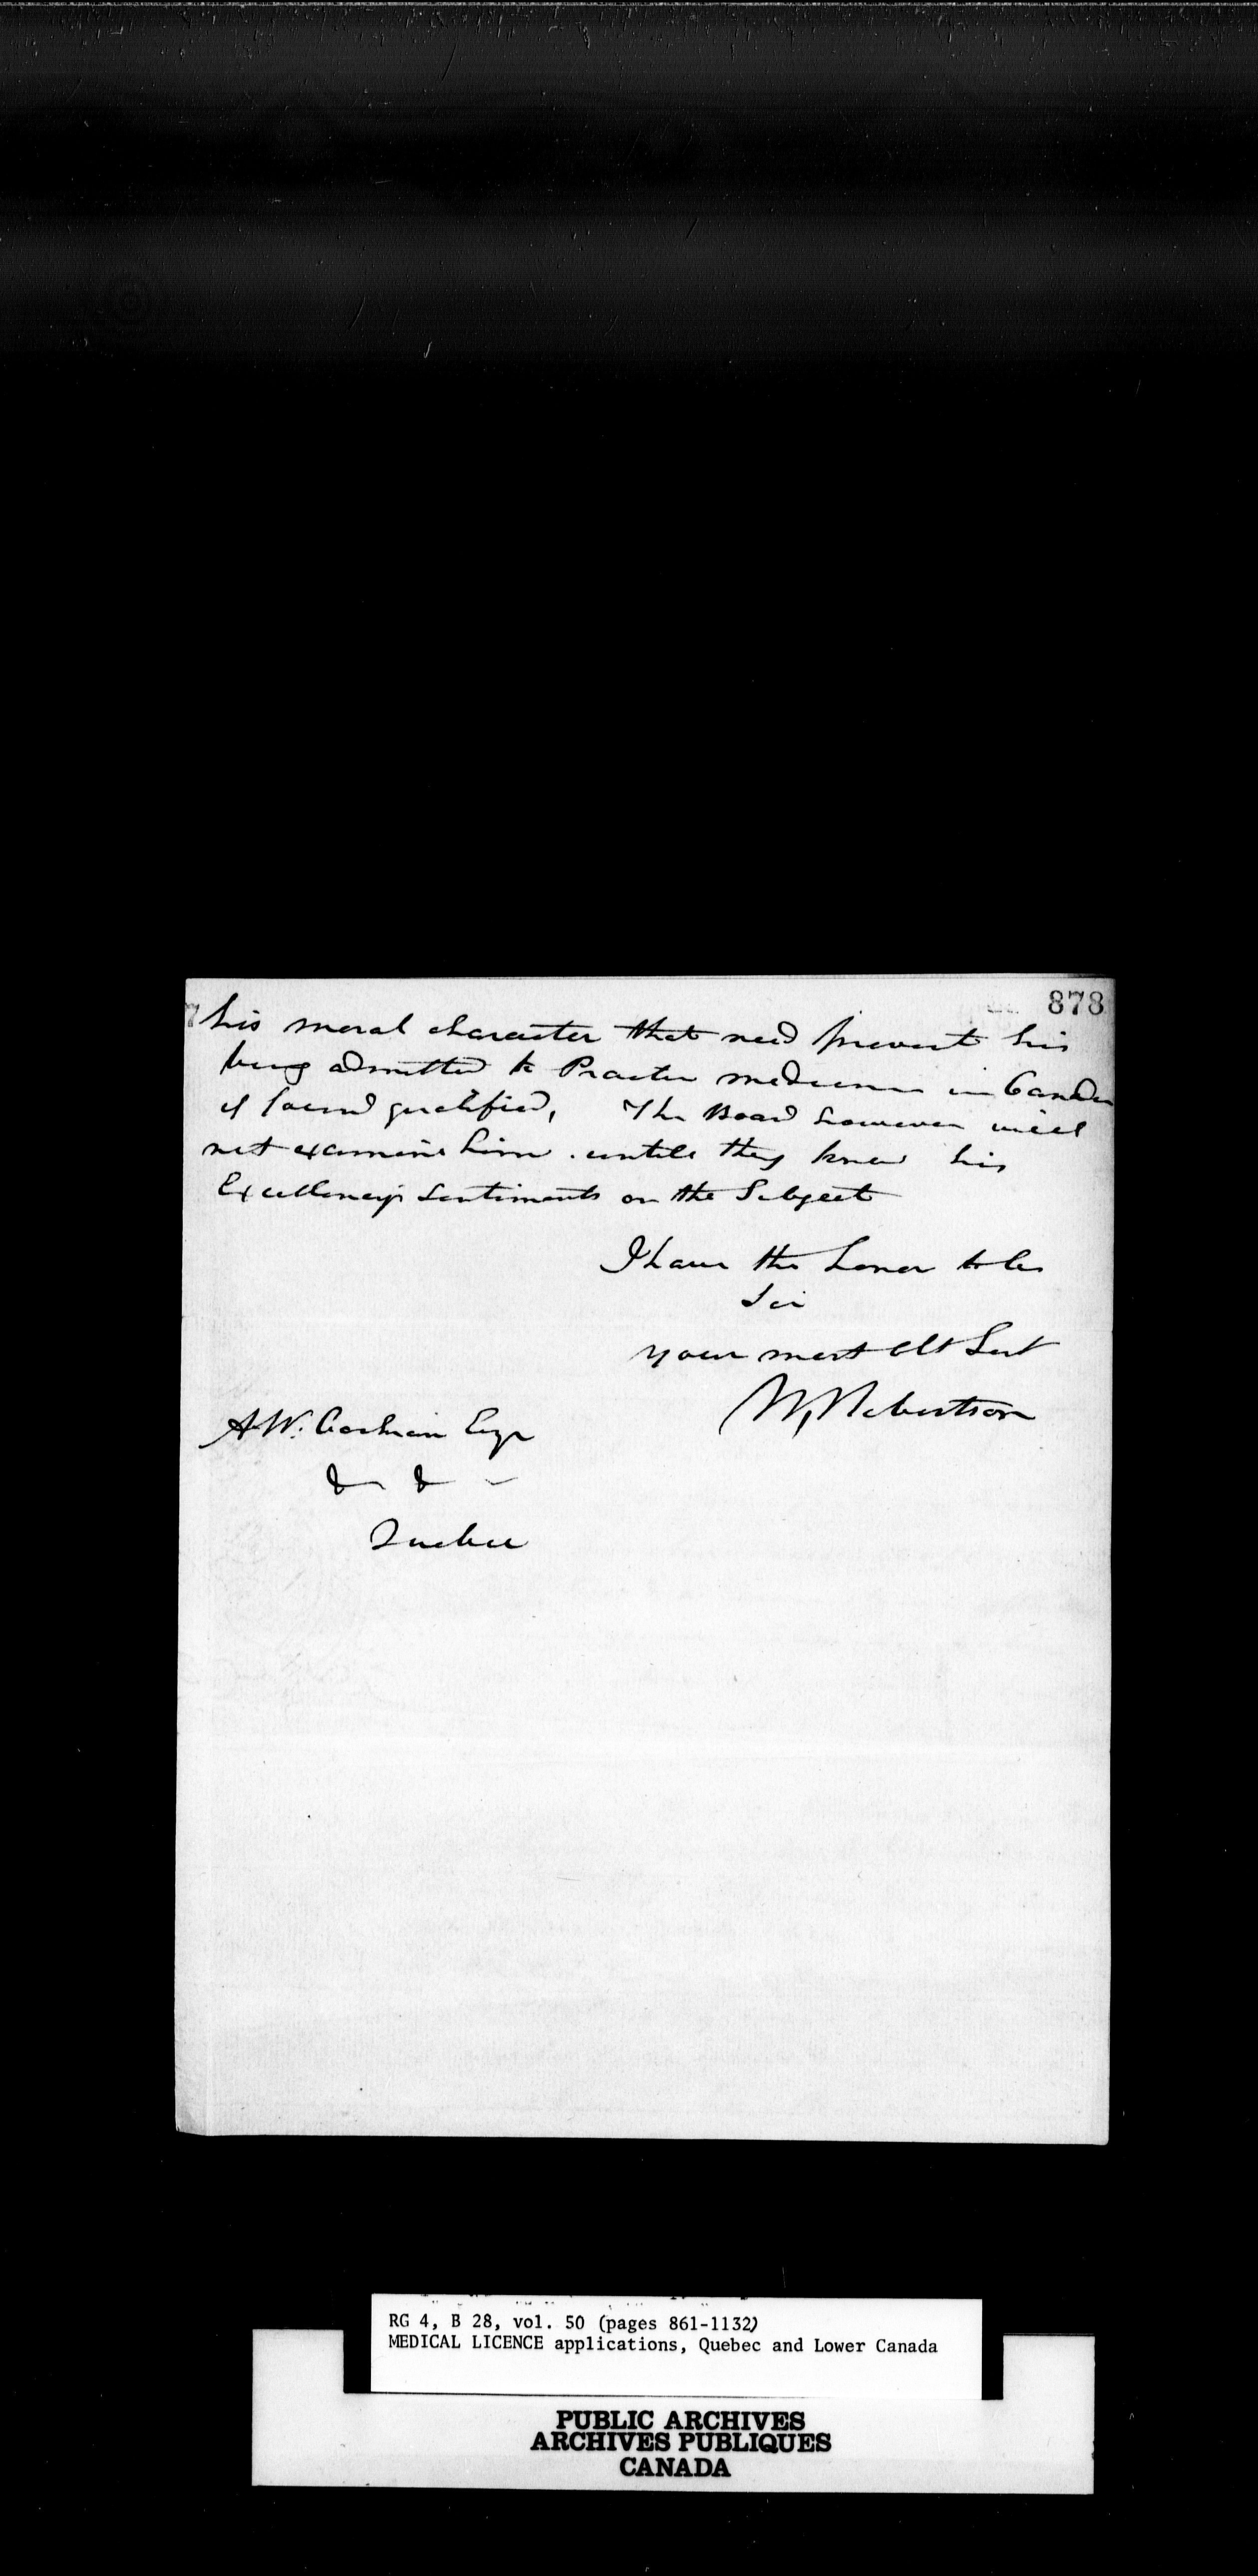 878
his moral character that need prevent his
being admitted to Practice medicine in Canada
if found qualified, The Board however will
not examine him until they know his
Excellency's Sentiments on the Subject
I have the honor to be
Sir
your most Obt Sert
W, Robertson
A. W. Cochran Esqr
& & -
Quebec
RG 4, B 28, vol. 50 (pages 861-1132)
MEDICAL LICENCE applications, Quebec and Lower Canada
PUBLIC ARCHIVES
ARCHIVES PUBLIQUES
CANADA